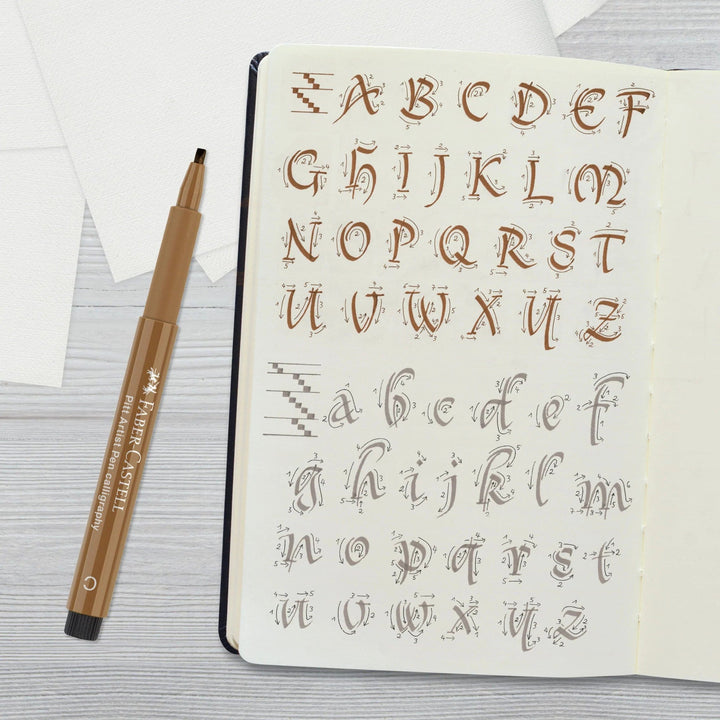 A B C D E F
G H I J K L M
N O P Q R S T
U V W X Y Z
a b c d e f
g h i j k l m
n o p q r s t
u v w x y z
FABER CASTELL
Pitt Artist Pen calligraphy
C